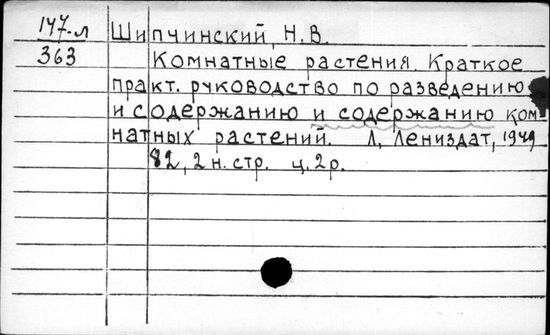 147-л Шипчинский, Н.В.
363 Комнатные растения. Краткое
практ. руководство по разведению
и содержанию и содержанию ком-
натных растений. Л, Лениздат, 1949
82, 2 н. стр. ц. 2 р.